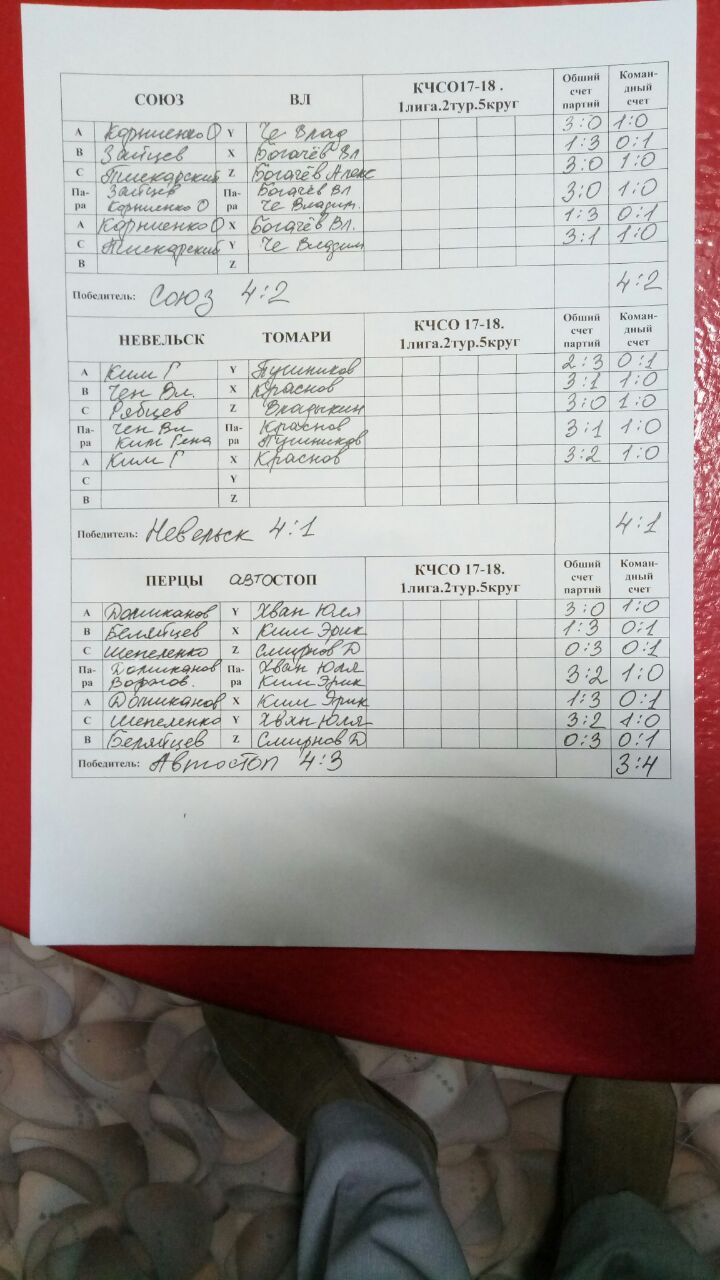 СОЮЗ ВЛ КЧСО17-18 . Общий Коман-
1лига.2тур.5круг счет дный
партий счет
А Корниенко О Y Че Влад 3:0 1:0
В Зайцев X Богачёв Вл 1:3 0:1
С Пискарский Z Богачёв Алекс 3:0 1:0
Па- Зайцев Па- Богачёв Вл 3:0 1:0
ра Корниенко О ра Че Владим.
А Корниенко О X Богачёв Вл. 1:3 0:1
С Пискарский Y Че Владим 3:1 1:0
В Z
Победитель: Союз 4:2 4:2
НЕВЕЛЬСК ТОМАРИ КЧСО 17-18. Общий Коман-
1лига.2тур.5круг счет дный
партий счет
А Ким Г Y Пушников 2:3 0:1
В Чен Вл. X Краснов 3:1 1:0
С Рябцев Z Владыкин 3:0 1:0
Па- Чен Вл Па- Краснов 3:1 1:0
ра Ким Гена ра Пушников
А Ким Г X Краснов 3:2 1:0
С Y
В Z
Победитель: Невельск 4:1 4:1
ПЕРЦЫ АВТОСТОП КЧСО 17-18. Общий Коман-
1лига.2тур.5круг счет дный
партий счет
А Домиканов Y Хван Юля 3:0 1:0
В Беляйцев X Ким Эрик 1:3 0:1
С Шепеленко Z Смирнов Д 0:3 0:1
Па- Домиканов Па- Хван Юля 3:2 1:0
ра ра Ким Эрик
А Домиканов X Ким Эрик 1:3 0:1
С Шепеленко Y Хван Юля 3:2 1:0
В Беляйцев Z Смирнов Д 0:3 0:1
Победитель: Автостоп 4:3 3:4